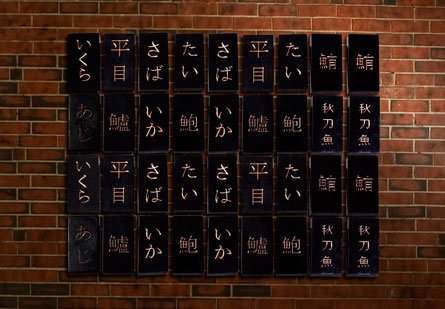 いくら 平目 さば たい さば 平目 たい 鮪 鮪
あじ 鱸 いか 鮑 いか 鱸 鮑 秋刀魚 秋刀魚
いくら 平目 さば たい さば 平目 たい 鮪 鮪
あじ 鱸 いか 鮑 いか 鱸 鮑 秋刀魚 秋刀魚